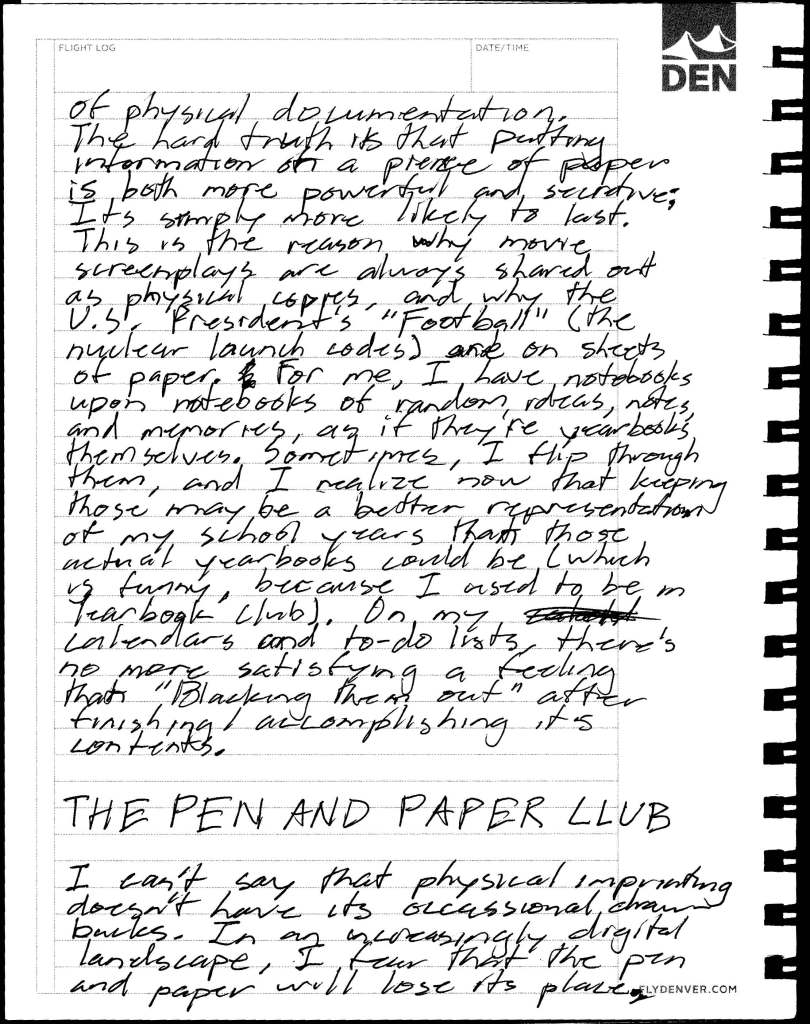 FLIGHT LOG
DATE/TIME
DEN
of physical documentation.
The hard truth is that putting
information on a pieece of paper
is both more powerful and secretive;
Its simply more likely to last.
This is the reason why movie
screenplays are always shared out
as physical copies, and why the
U.S. President's "Football" (the
nuclear launch codes) are on sheets
of paper. For me, I have notebooks
upon notebooks of random ideas, notes,
and memories, as if they're yearbooks
themselves. Sometimes, I flip through
them, and I realize now that keeping
those may be a better representation
of my school years than those
actual yearbooks could be (which
is funny, because I used to be in
Yearbook Club). On my
calendars and to-do lists, there's
no more satisfying a feeling
than "Blacking them out" after
finishing/accomplishing it's
contents.
THE PEN AND PAPER CLUB
I can't say that physical imprinting
doesn't have its occassional draw
backs. In an increasingly digital
landscape, I fear that the pen
and paper will lose its place,
FLYDENVER.COM